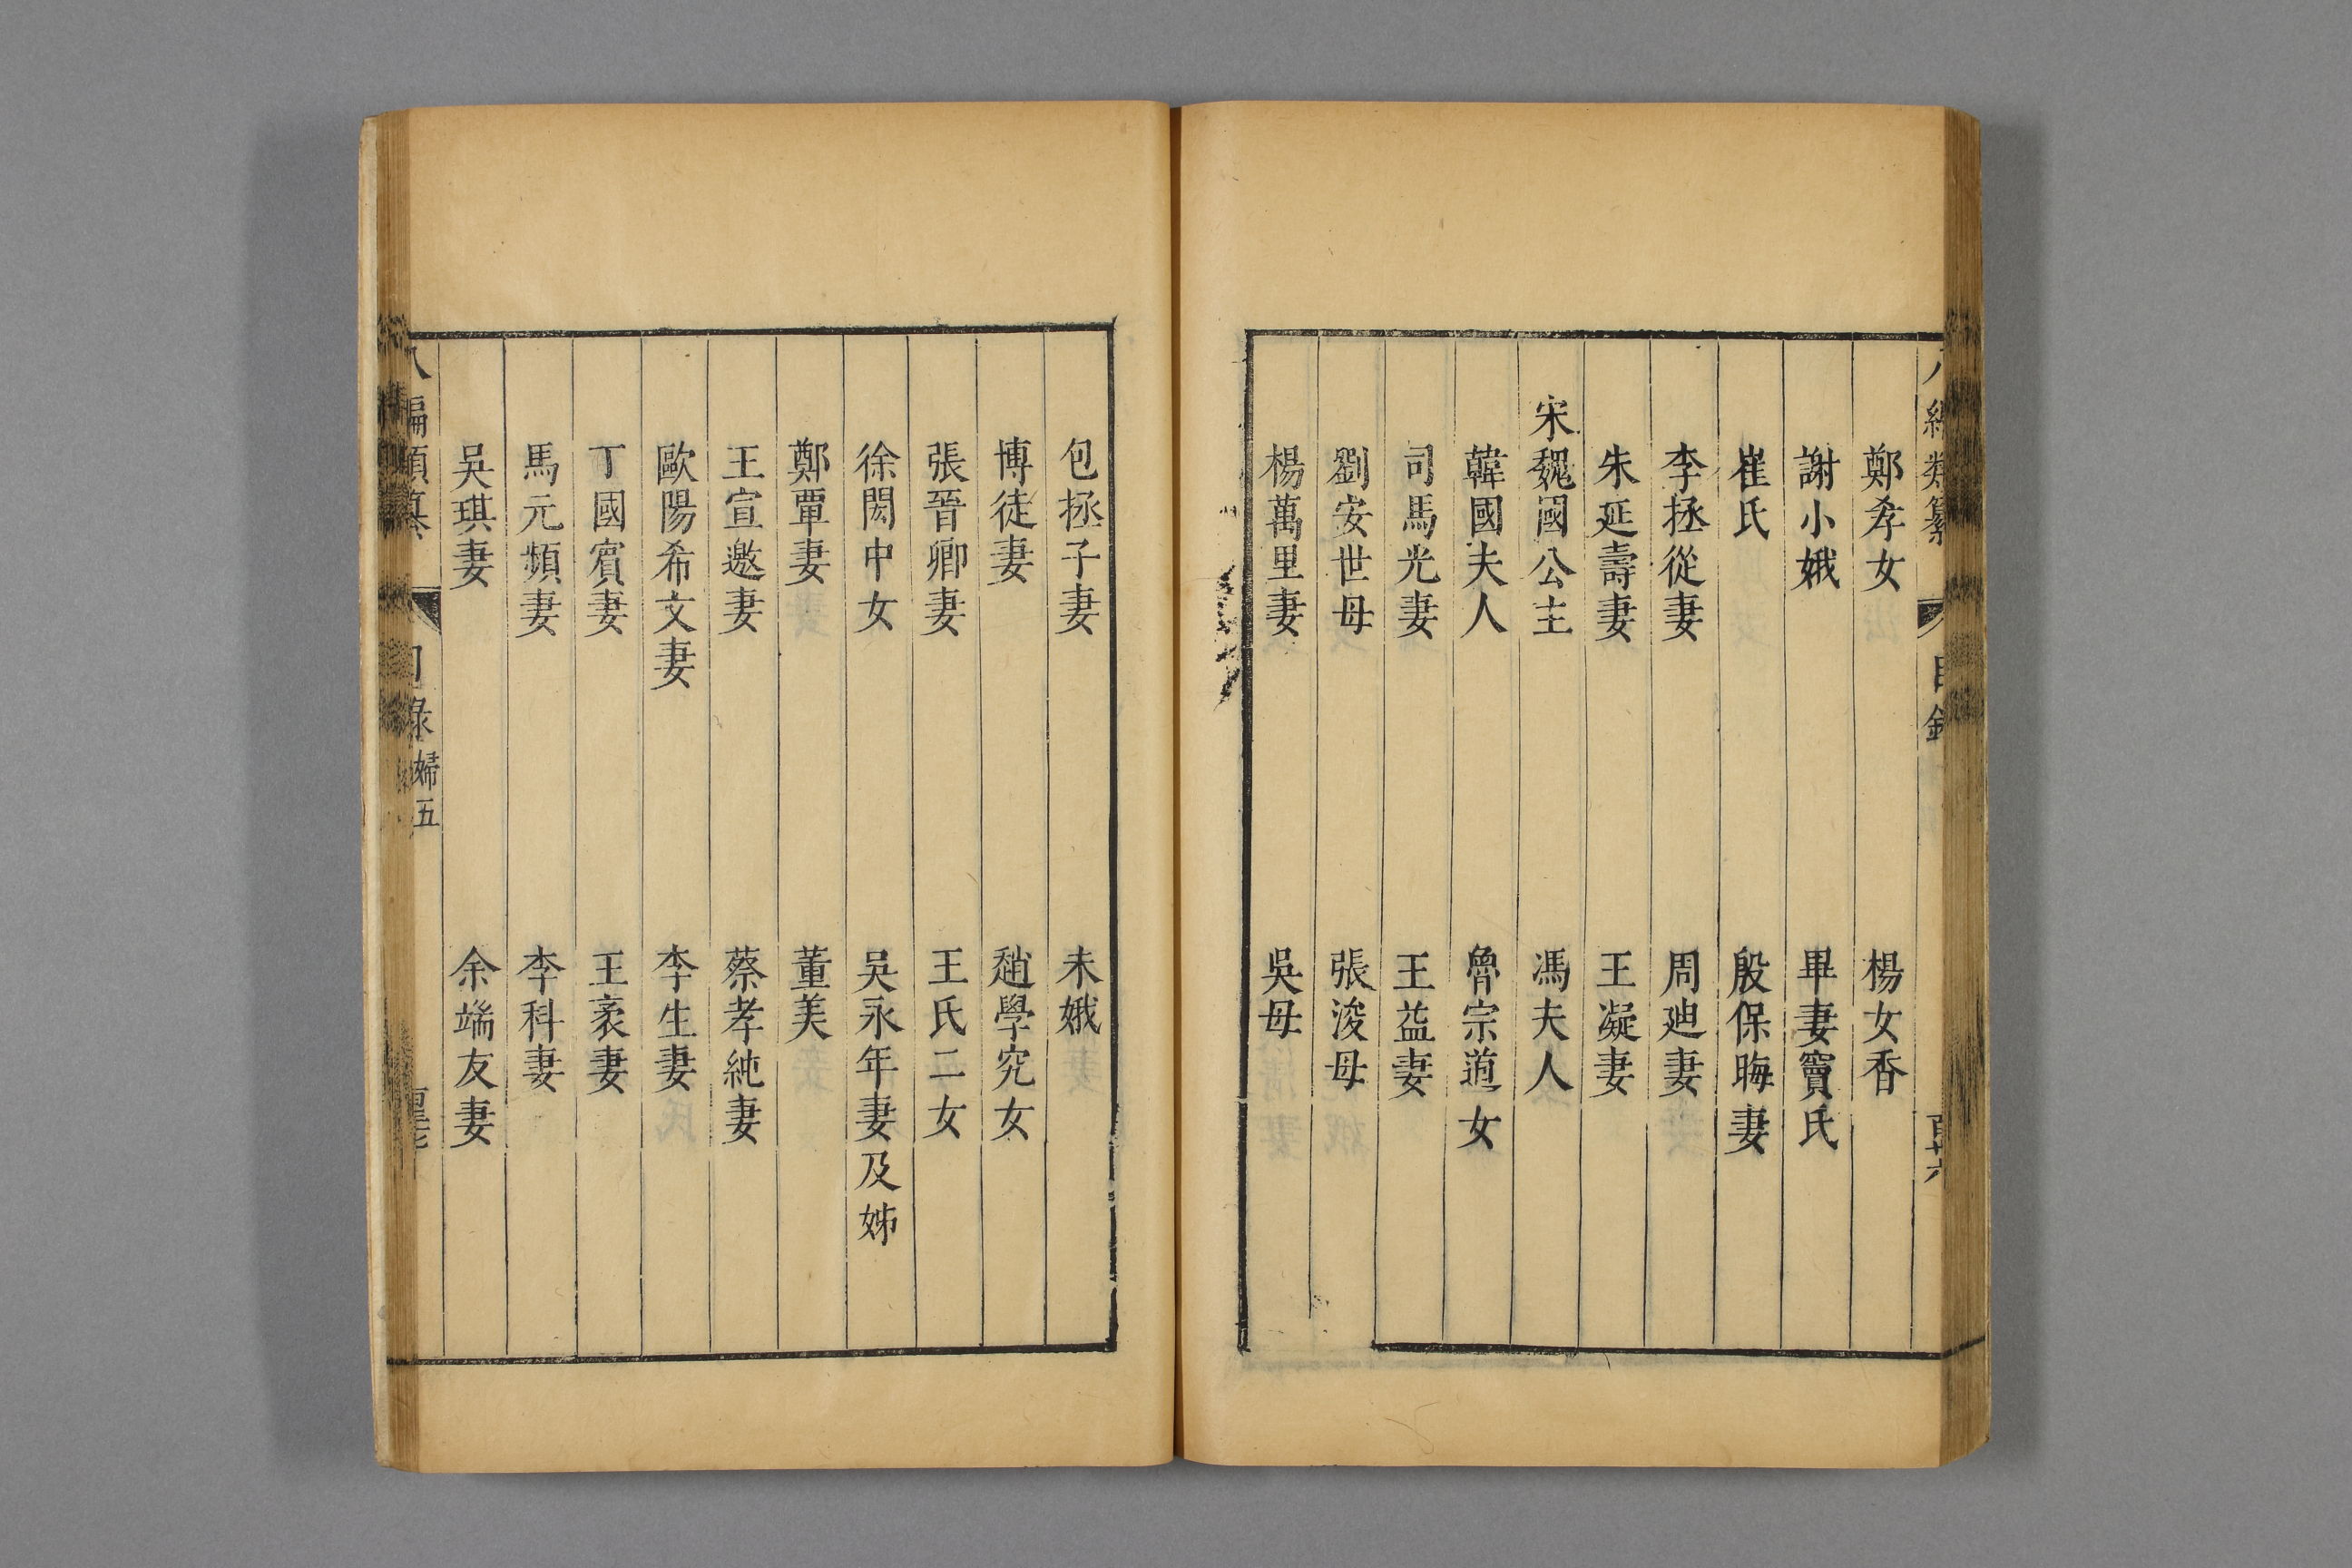 鄭孝女　楊女香
謝小娥　畢妻竇氏
崔氏　殷保晦妻
李拯從妻　周廸妻
朱延壽妻　王凝妻
宋魏國公主　馮夫人
韓國夫人　魯宗道女
司馬光妻　王益妻
劉安世母　張浚母
楊萬里妻　吳母
包拯子妻　朱娥
博徒妻　趙學究女
張晉卿妻　王氏二女
徐閎中女　吳永年妻及姊
鄭覃妻　董美
王宣邀妻　蔡孝純妻
歐陽希文妻　李生妻
丁國賓妻　王袤妻
馬元頻妻　李科妻
吳琪妻　余端友妻
編類纂　目錄　婦五